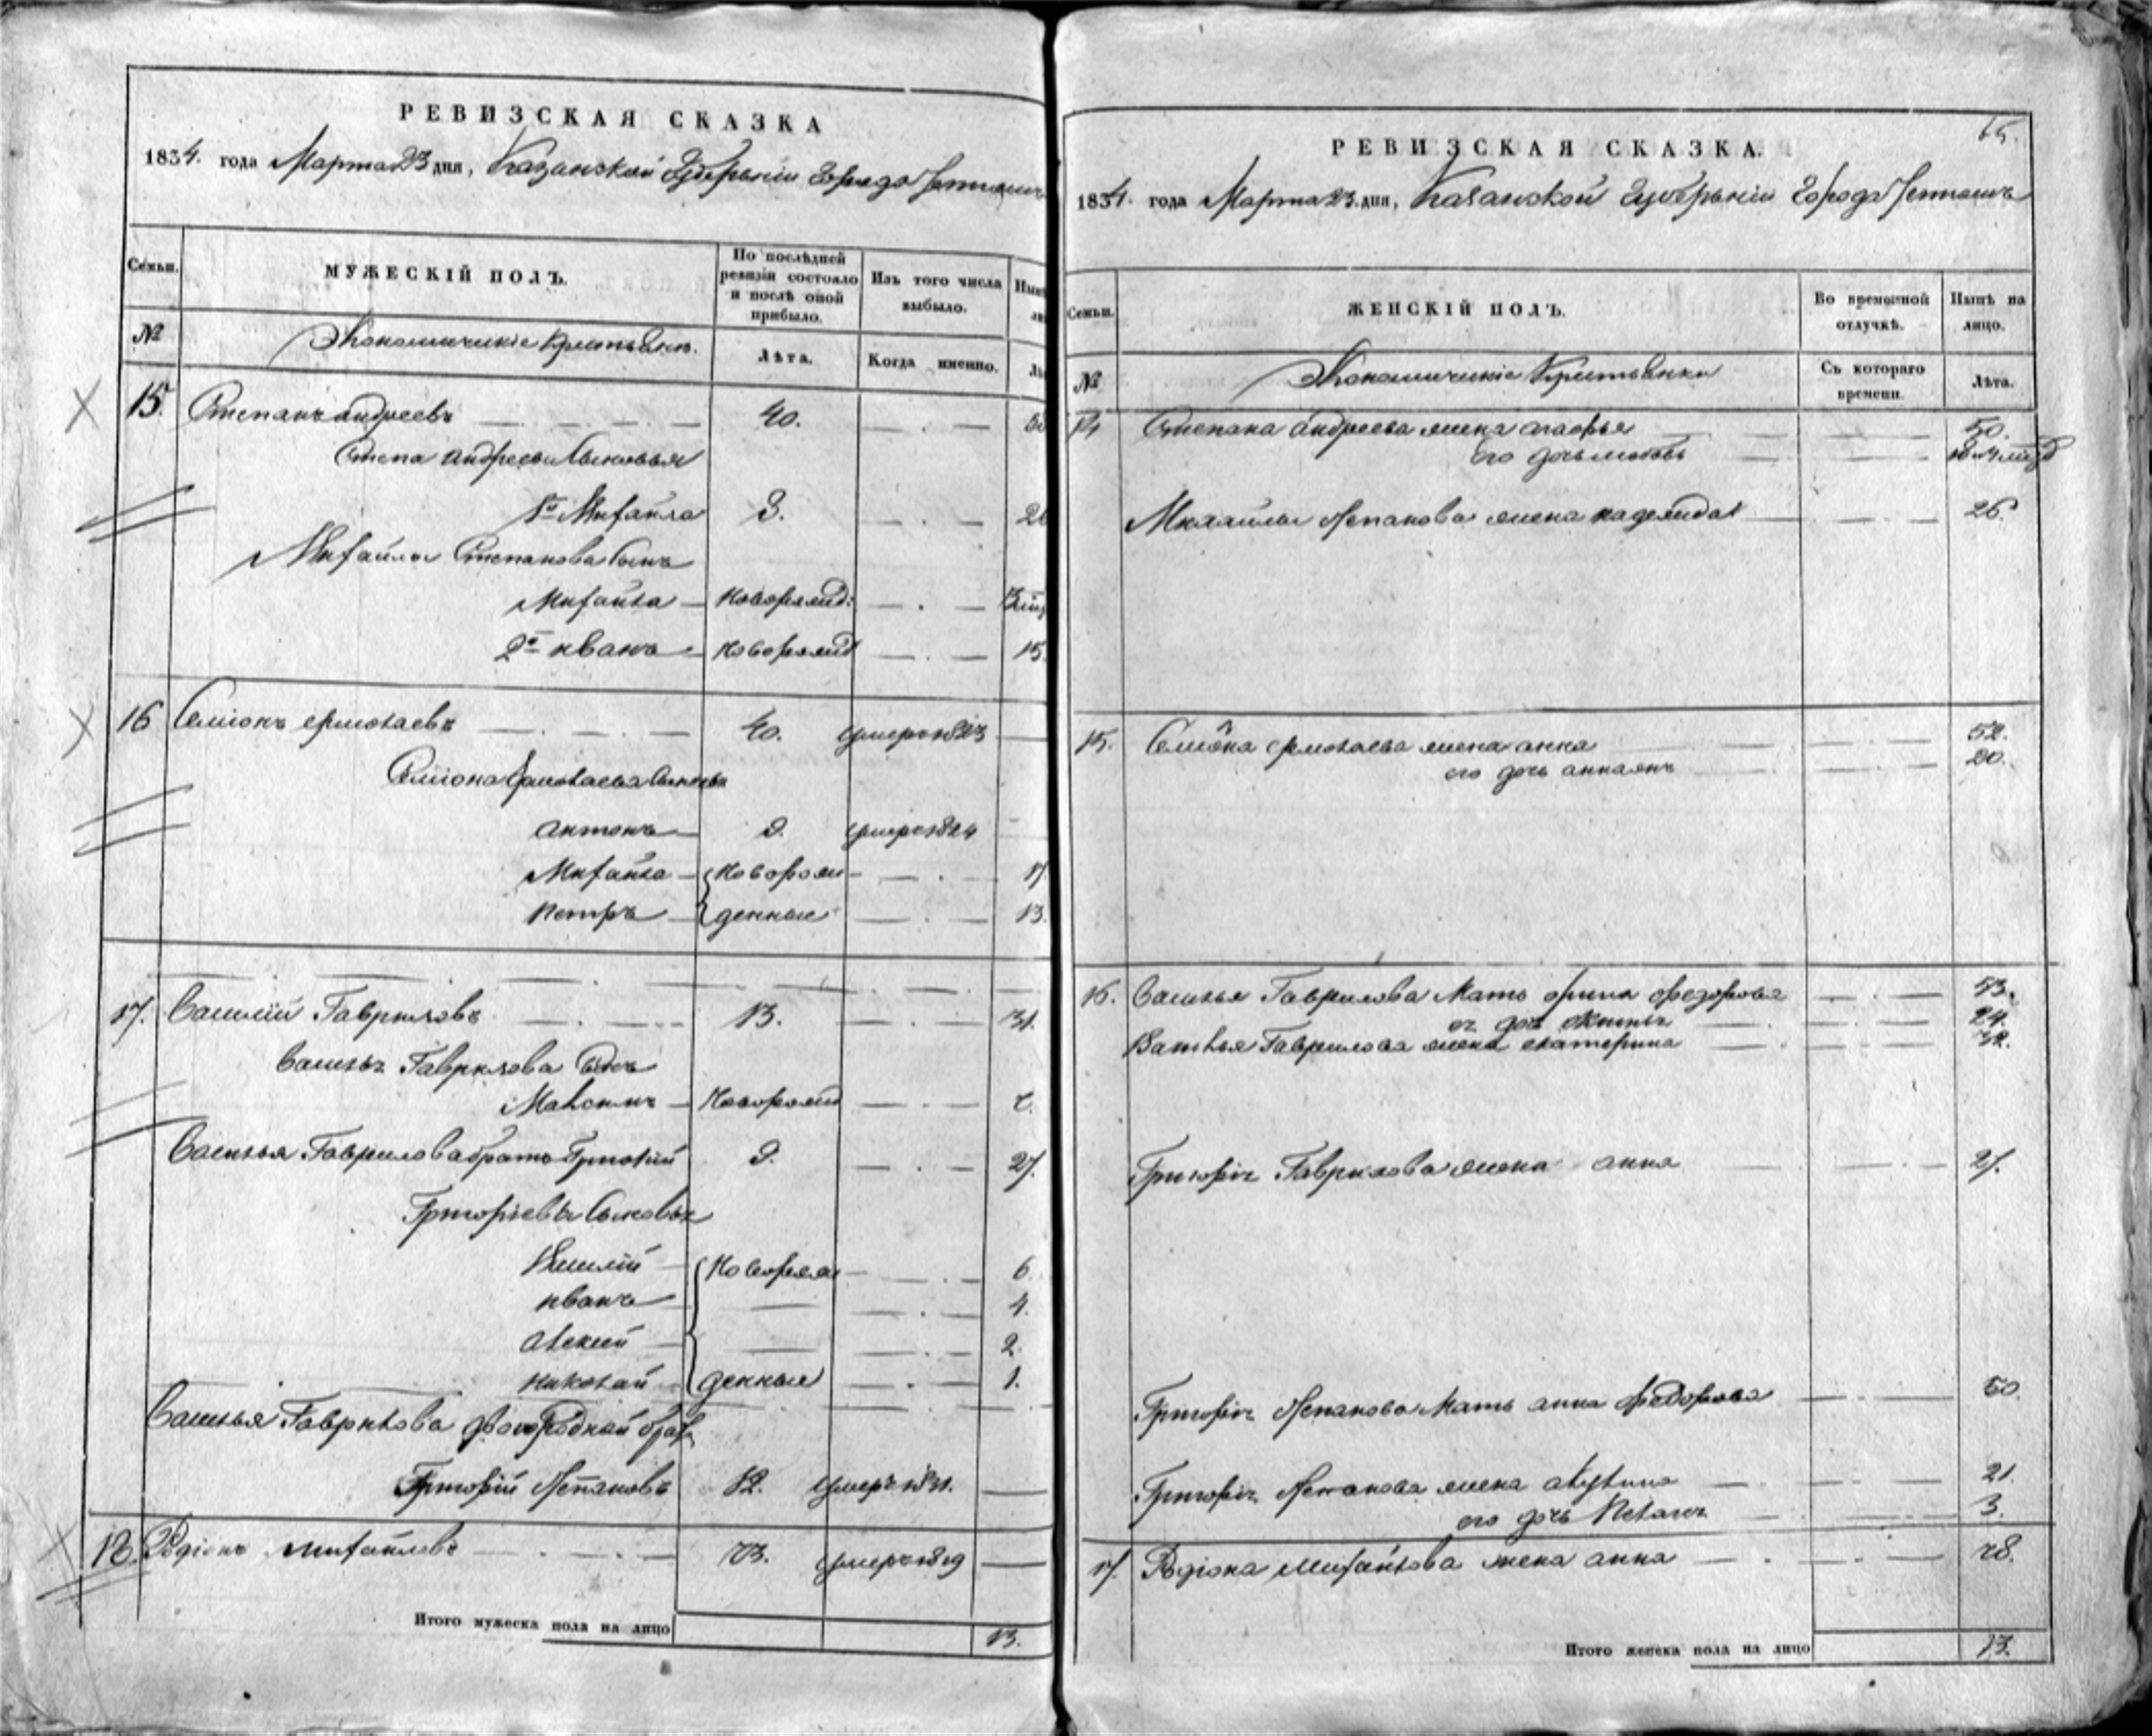 РЕВИЗСКАЯ СКАЗКА
1834. года Марта 23 дня, Казанской Губернiи Города
Семьи.
МУЖЕСКІЙ ПОЛЪ.
По послѣдней ревизіи состояло и послѣ оной прибыло.
Изъ того числа выбыло.
№
Экономическіе Крестьяне.
Лѣта.
Когда именно.
15. Степанъ андреевъ 40.
андреева Сыновья
1й Михайла 3.
Михайлы Степанова Сынъ
Михайла Новорожд:
2й иванъ Новорожд 15.
16 Семіонъ ермолаевъ 40. умеръ 1823
Семіона Ермолаева Сыновья
антонъ 9. умеръ 1824
Михайла Новорож 17
петръ денные 13.
17. Василій Гавриловъ 13. 31.
Василья Гаврилова Сынъ
Максимъ Новорожд
Василья Гаврилова братъ Григорій 9. 27.
Григорьевы Сыновья
Василій Новорож 6
иванъ 4.
алексѣй 2
николай денные 1.
Василья Гаврилова двоюродной братъ
Григорій Степановъ 12. умеръ 1831.
18. Родіонъ михайловъ 73. умеръ 1819
Итого мужеска пола на лицо 13.
65.
РЕВИЗСКАЯ СКАЗКА.
1834. года Марта 23. дня, Казанской Губернiи Города
Семьи.
ЖЕНСКІЙ ПОЛЪ.
Во временной отлучкѣ.
Нынѣ на лицо.
№
Экономическіе Крестьянки
Съ котораго времени.
Лѣта.
14 Степана андреева жена 50.
его дочь
Михайлы Степанова жена 26.
15. Семіона ермолаева жена анна 52.
его дочь 20.
16. Василья Гаврилова Мать орина федорова 53.
ея дочь 24.
Василья Гаврилова жена екатерина 32.
Григорія Гаврилова жена анна 27.
Григорія Степанова Мать анна федорова 50
Григорія Степанова жена акулина 21.
его дочь 3.
17. Родіона Михайлова жена анна 78.
Итого женска пола на лицо 13.